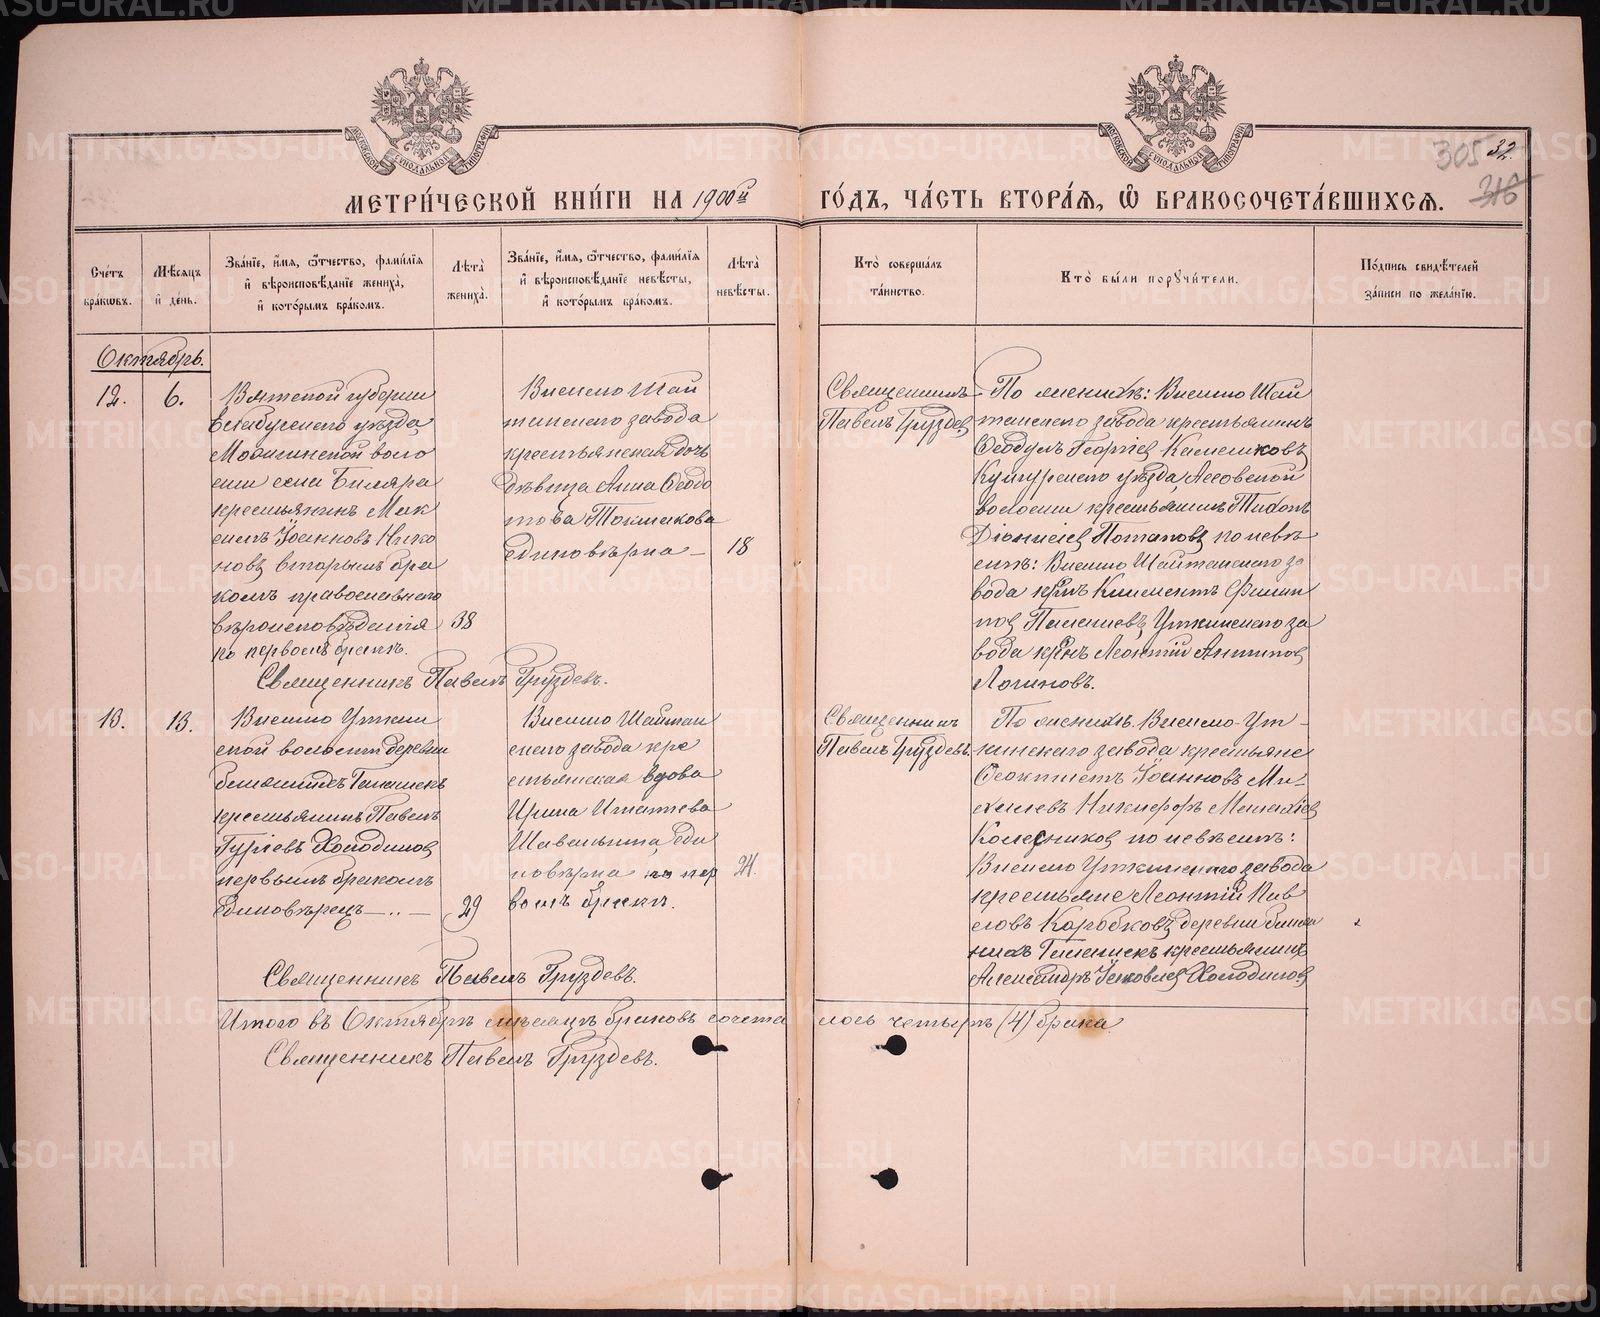 МЕТРИ́ЧЕСКОЙ КНИ́ГИ НА 1900й ГО́ДЪ, ЧА́СТЬ ВТОРА́Я, Ѡ БРАКОСОЧЕТА́ВШИХСЯ.
305 32
318
Сче́тъ бра́ковъ.
Мѣ́сяцъ и де́нь.
Зва́ніе, и́мя, ѻ́тчество, фами́лія и҆ вѣроисповѣ́даніе жениха̀, и҆ кото́рымъ бра́комъ.
Лѣта̀ жениха̀.
Зва́ніе, и́мя, ѻ́тчество, фами́лія и҆ вѣроисповѣ́даніе невѣ́сты, и҆ кото́рымъ бра́комъ.
Лѣта̀ невѣ́сты.
Кто̀ соверша́лъ та́инство.
Кто̀ бы́ли порꙋчи́тели.
По́дпись свидѣ́телей за́писи по жела́нію.
Октябрь.
12.
6.
Вятской губерніи
Елабужскаго уѣзда,
воло
сти села Биляра
крестьянинъ Мак
симъ Іоанновъ Нико
новъ вторымъ бра
комъ православнаго
вѣроисповѣданія
по первомъ бракѣ.
38
Висимо Шай
танскаго завода
крестьянская дочь
дѣвица Анна Ѳеодо
това Токмакова
единовѣрка —
18
Священникъ
Павелъ Груздевъ
По женихѣ: Висимо Шай
танскаго завода крестьянинъ
Ѳеодулъ Георгіевъ Камешковъ
Кунгурскаго уѣзда, Асовской
волости крестьянинъ Тихонъ
Діонисіевъ Потаповъ по невѣ
стѣ: Висимо Шайтанскаго за
вода кр̃нъ Климентъ Филип
повъ Уткинскаго за
вода кр̃нъ Леонтій Антипов
Логиновъ.
Священникъ Павелъ Груздевъ.
13.
13.
Висимо Уткин
ской волости деревни
Галашекъ
крестьянинъ Павелъ
Гуріевъ Холодиловъ
первымъ бракомъ
единовѣрецъ —..—
29
Висимо Шайтан
скаго завода кре
стьянская вдова
Ирина Игнатіева
Шавкунова, еди
новѣрка по пер
вомъ бракѣ.
24.
Священникъ
Павелъ Груздевъ.
По женихѣ: Висимо-Ут-
кинскаго завода крестьяне
Ѳеоктистъ Іоанновъ Ми-
хаилевъ Никифоръ Малахіев
Колесниковъ по невѣстѣ:
Висимо Уткинскаго завода
крестьяне Леонтій Пав
ловъ Коробковъ, деревни
Галашекъ крестьянинъ
Александръ Іаковлевъ Холодиловъ
Священникъ Павелъ Груздевъ.
Итого въ Октябрѣ мѣсяцѣ браковъ сочета лось четыре (4) брака.
Священникъ Павелъ Груздевъ.
METRIKI.GASO-URAL.RU